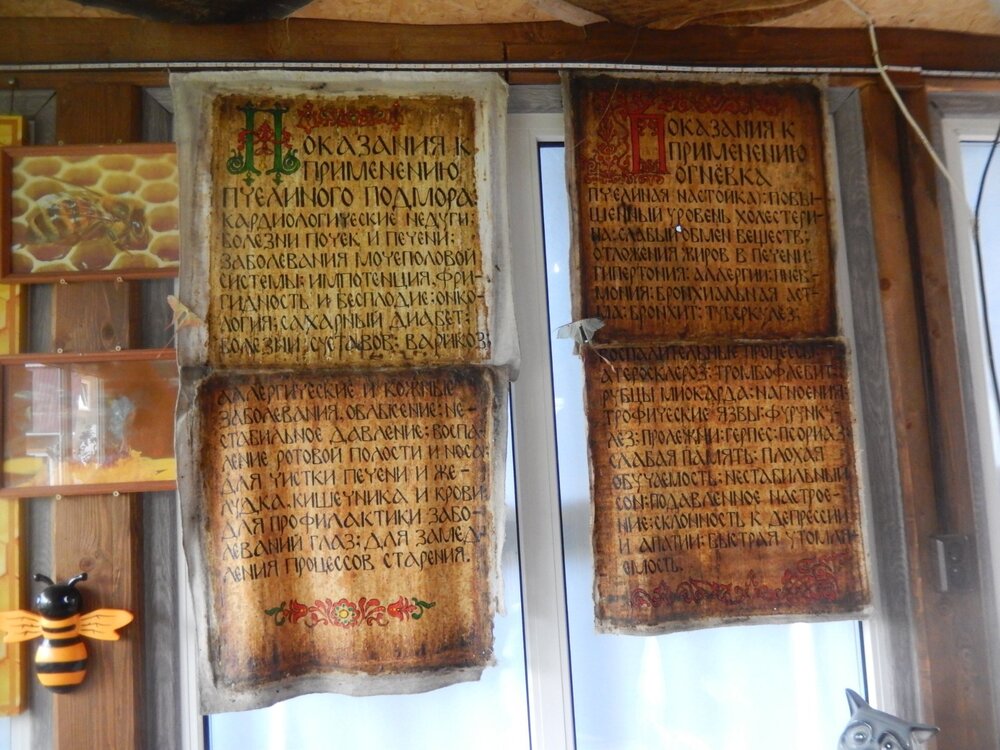 Показания к
применению
пчелиного подмора:
кардиологические недуги;
болезни почек и печени;
заболевания мочеполовой
системы; импотенция, фри-
гидность и бесплодие; онко-
логия; сахарный диабет;
болезни суставов; варикоз;
аллергические и кожные
заболевания, облысение; не-
стабильное давление; воспа-
ление ротовой полости и носа;
для чистки печени и же-
лудка, кишечника и крови
для профилактики забо-
леваний глаз; для замед-
ления процессов старения.
Показания к
применению
огнёвка
пчелиная настойка: повы-
шенный уровень холестери-
на; слабый обмен веществ;
отложения жиров в печени;
гипертония; аллергии; пнев-
мония; бронхиальная аст-
ма; бронхит; туберкулёз;
воспалительные процессы
атеросклероз; тромбофлевит;
рубцы миокарда; нагноения
трофические язвы; фурунку-
лез; пролежни; герпес; псориаз;
слабая память; плохая
обучаемость; нестабильный
сон; подавленное настрое-
ние; склонность к депрессии
и апатии; быстрая утомля-
емость.